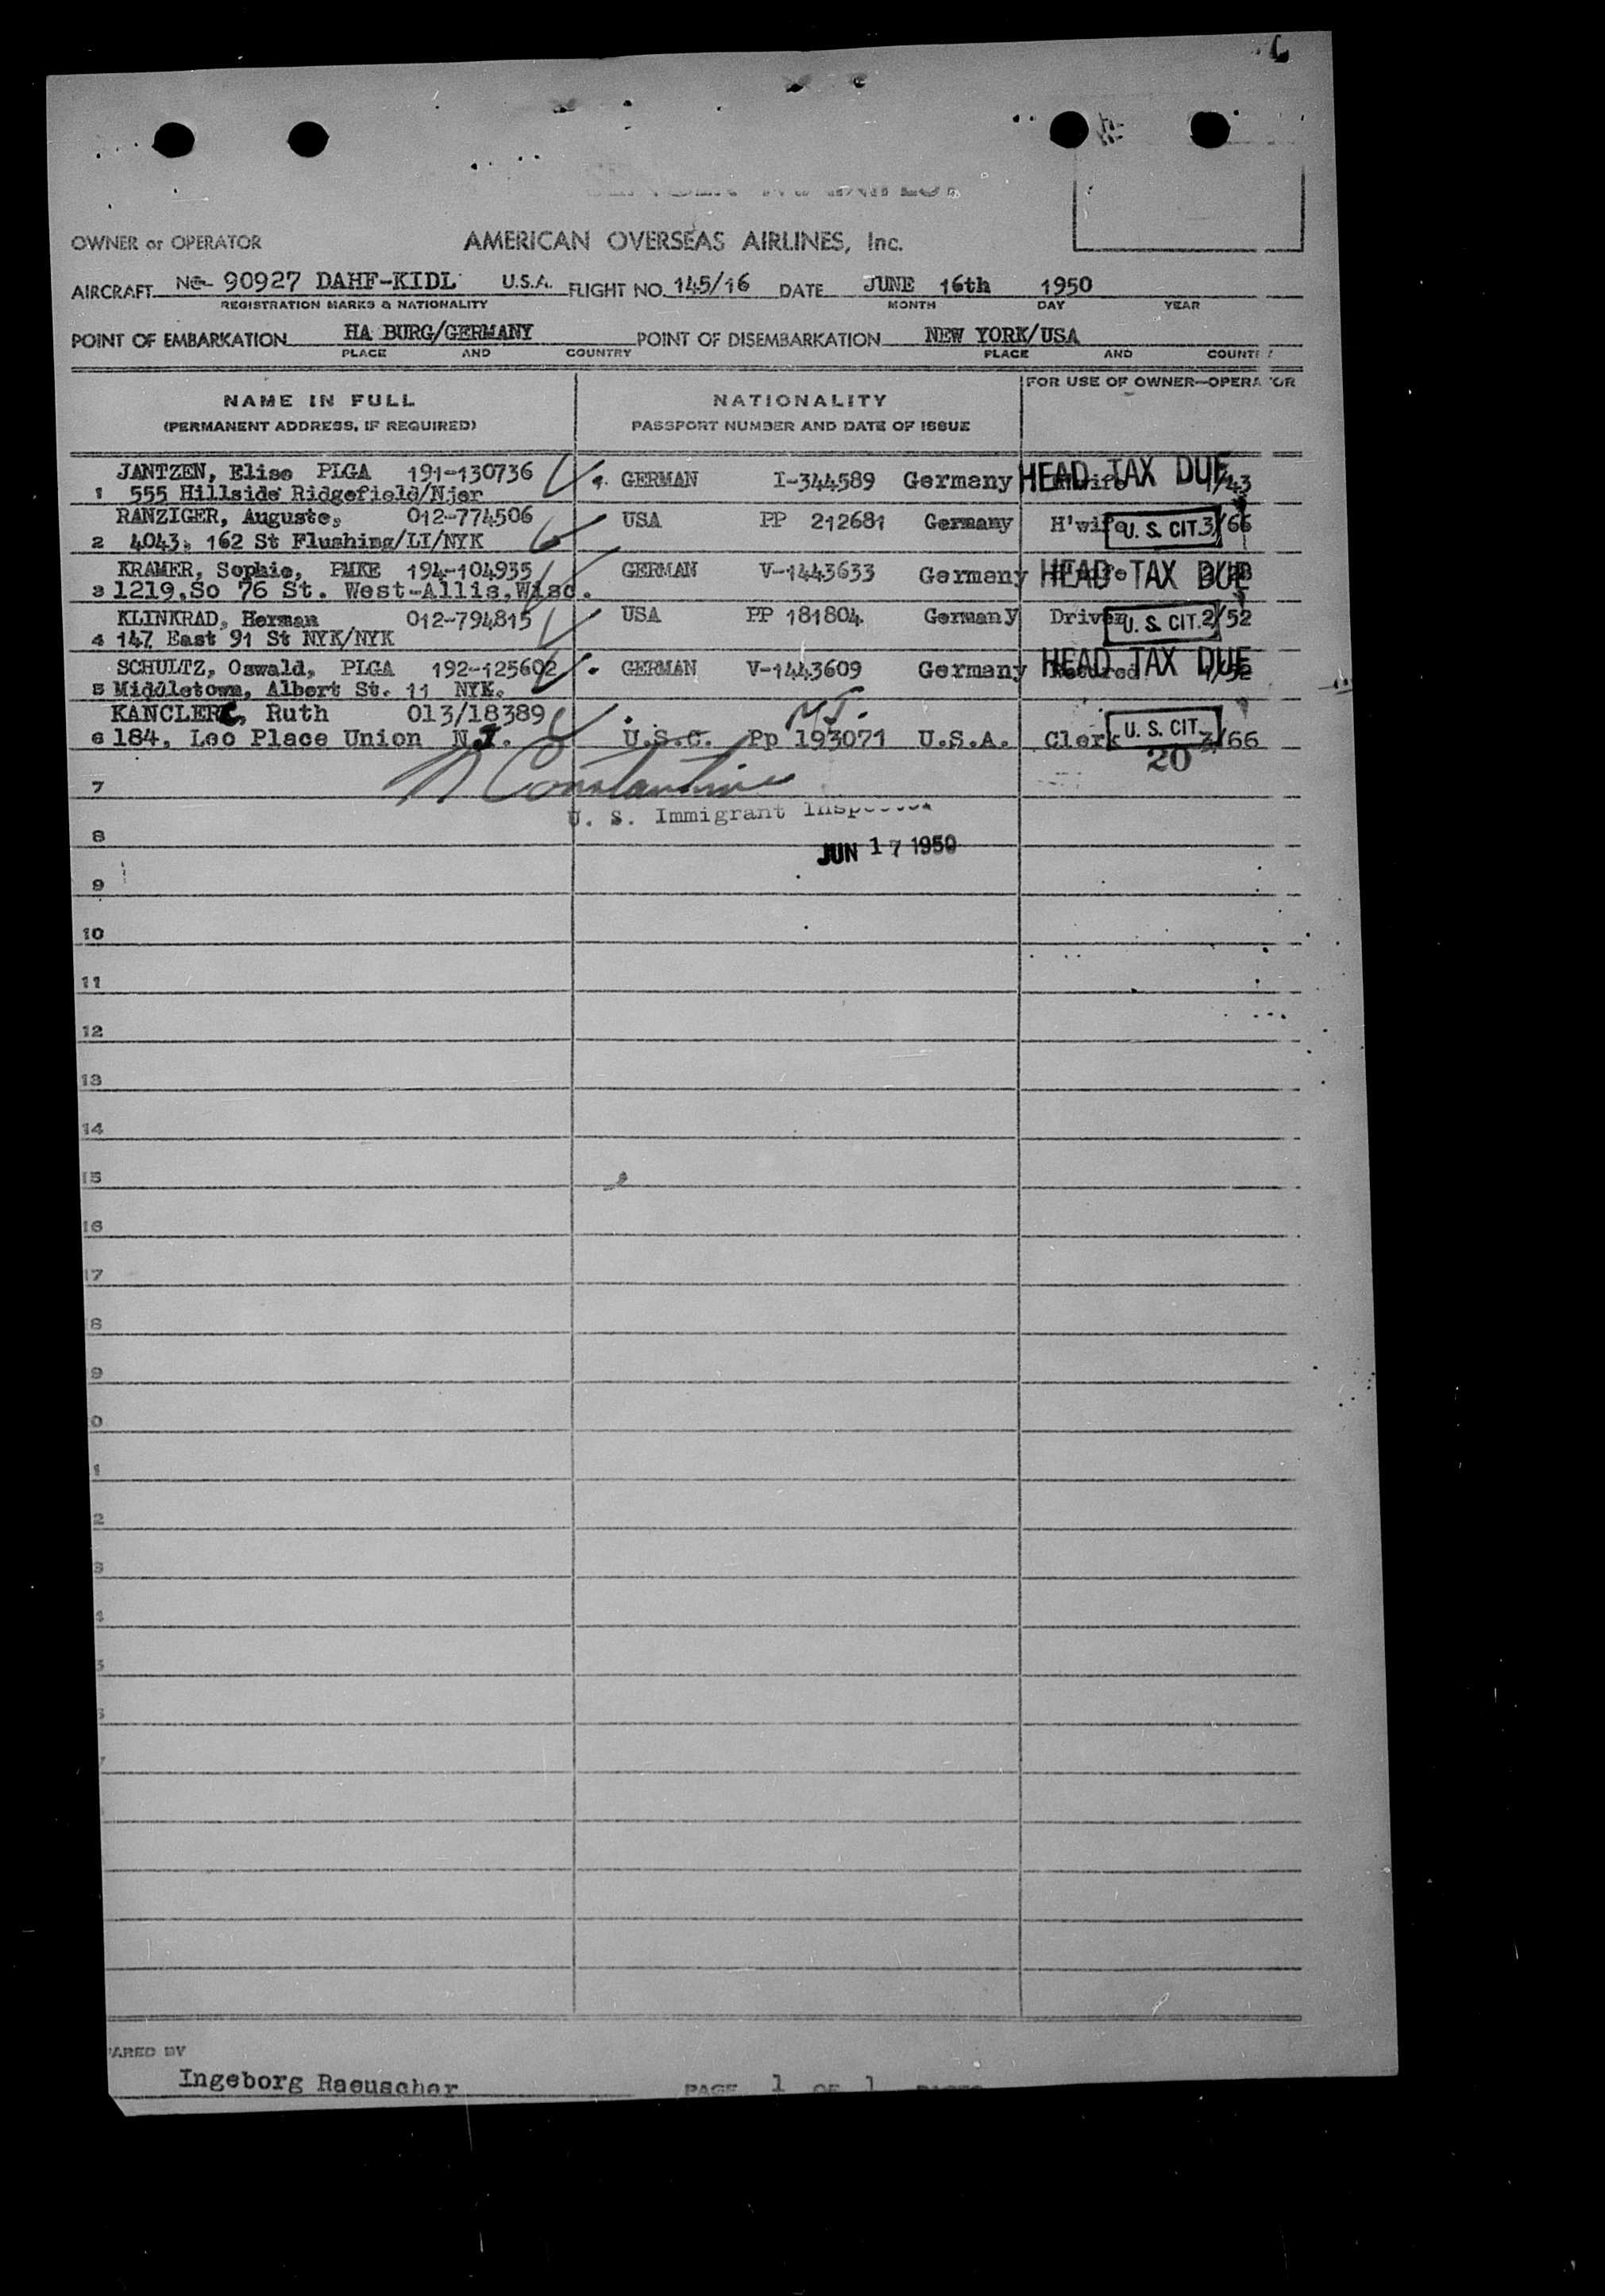 OWNER or OPERATOR AMERICAN OVERSEAS AIRLINES, Inc.
AIRCRAFT NC- 90927 DAHF-KIDL U.S.A. FLIGHT NO. 145/16 DATE JUNE 16th 1950
REGISTRATION MARKS & NATIONALITY MONTH DAY YEAR
POINT OF EMBARKATION HA BURG/GERMANY POINT OF DISEMBARKATION NEW YORK/USA
PLACE AND COUNTRY PLACE AND COUNT
FOR USE OF OWNER-OPERA OR
NAME IN FULL NATIONALITY
(PERMANENT ADDRESS, IF REQUIRED) PASSPORT NUMBER AND DATE OF ISSUE
JANTZEN, Elise PLGA 191-130736 GERMAN I-344589 Germany HEAD TAX DUE /43
1 555 Hillside Ridgefield/Njer
RANZIGER, Auguste, 012-774506 USA PP 212681 Germany H'wife U. S. CIT. 3/66
2 4043, 162 St Flushing/LI/NYK
KRAMER, Sophie, PMKE 194-104935 GERMAN V-1443633 Germany HEAD TAX DUE
3 1219,So 76 St. West-Allis,Wisc.
KLINKRAD, Herman 012-794815 USA PP 181804 Germany Driver U. S. CIT. 2/52
4 147 East 91 St NYK/NYK
SCHULTZ, Oswald, PLGA 192-125602 GERMAN V-1443609 Germany HEAD TAX DUE
5 Middletown, Albert St. 11 NYK.
KANCLER, Ruth 013/18389 NJ.
6 184, Leo Place Union N.J. U.S.C. Pp 193071 U.S.A. Clerk U. S. CIT. 3/66
20
7
N Constantine
U. S. Immigrant
8
JUN 17 1950
9
10
11
12
13
14
15
16
17
8
9
0
1
2
3
4
5
ARED BY
Ingeborg Raeuscher PAGE 1 OF 1